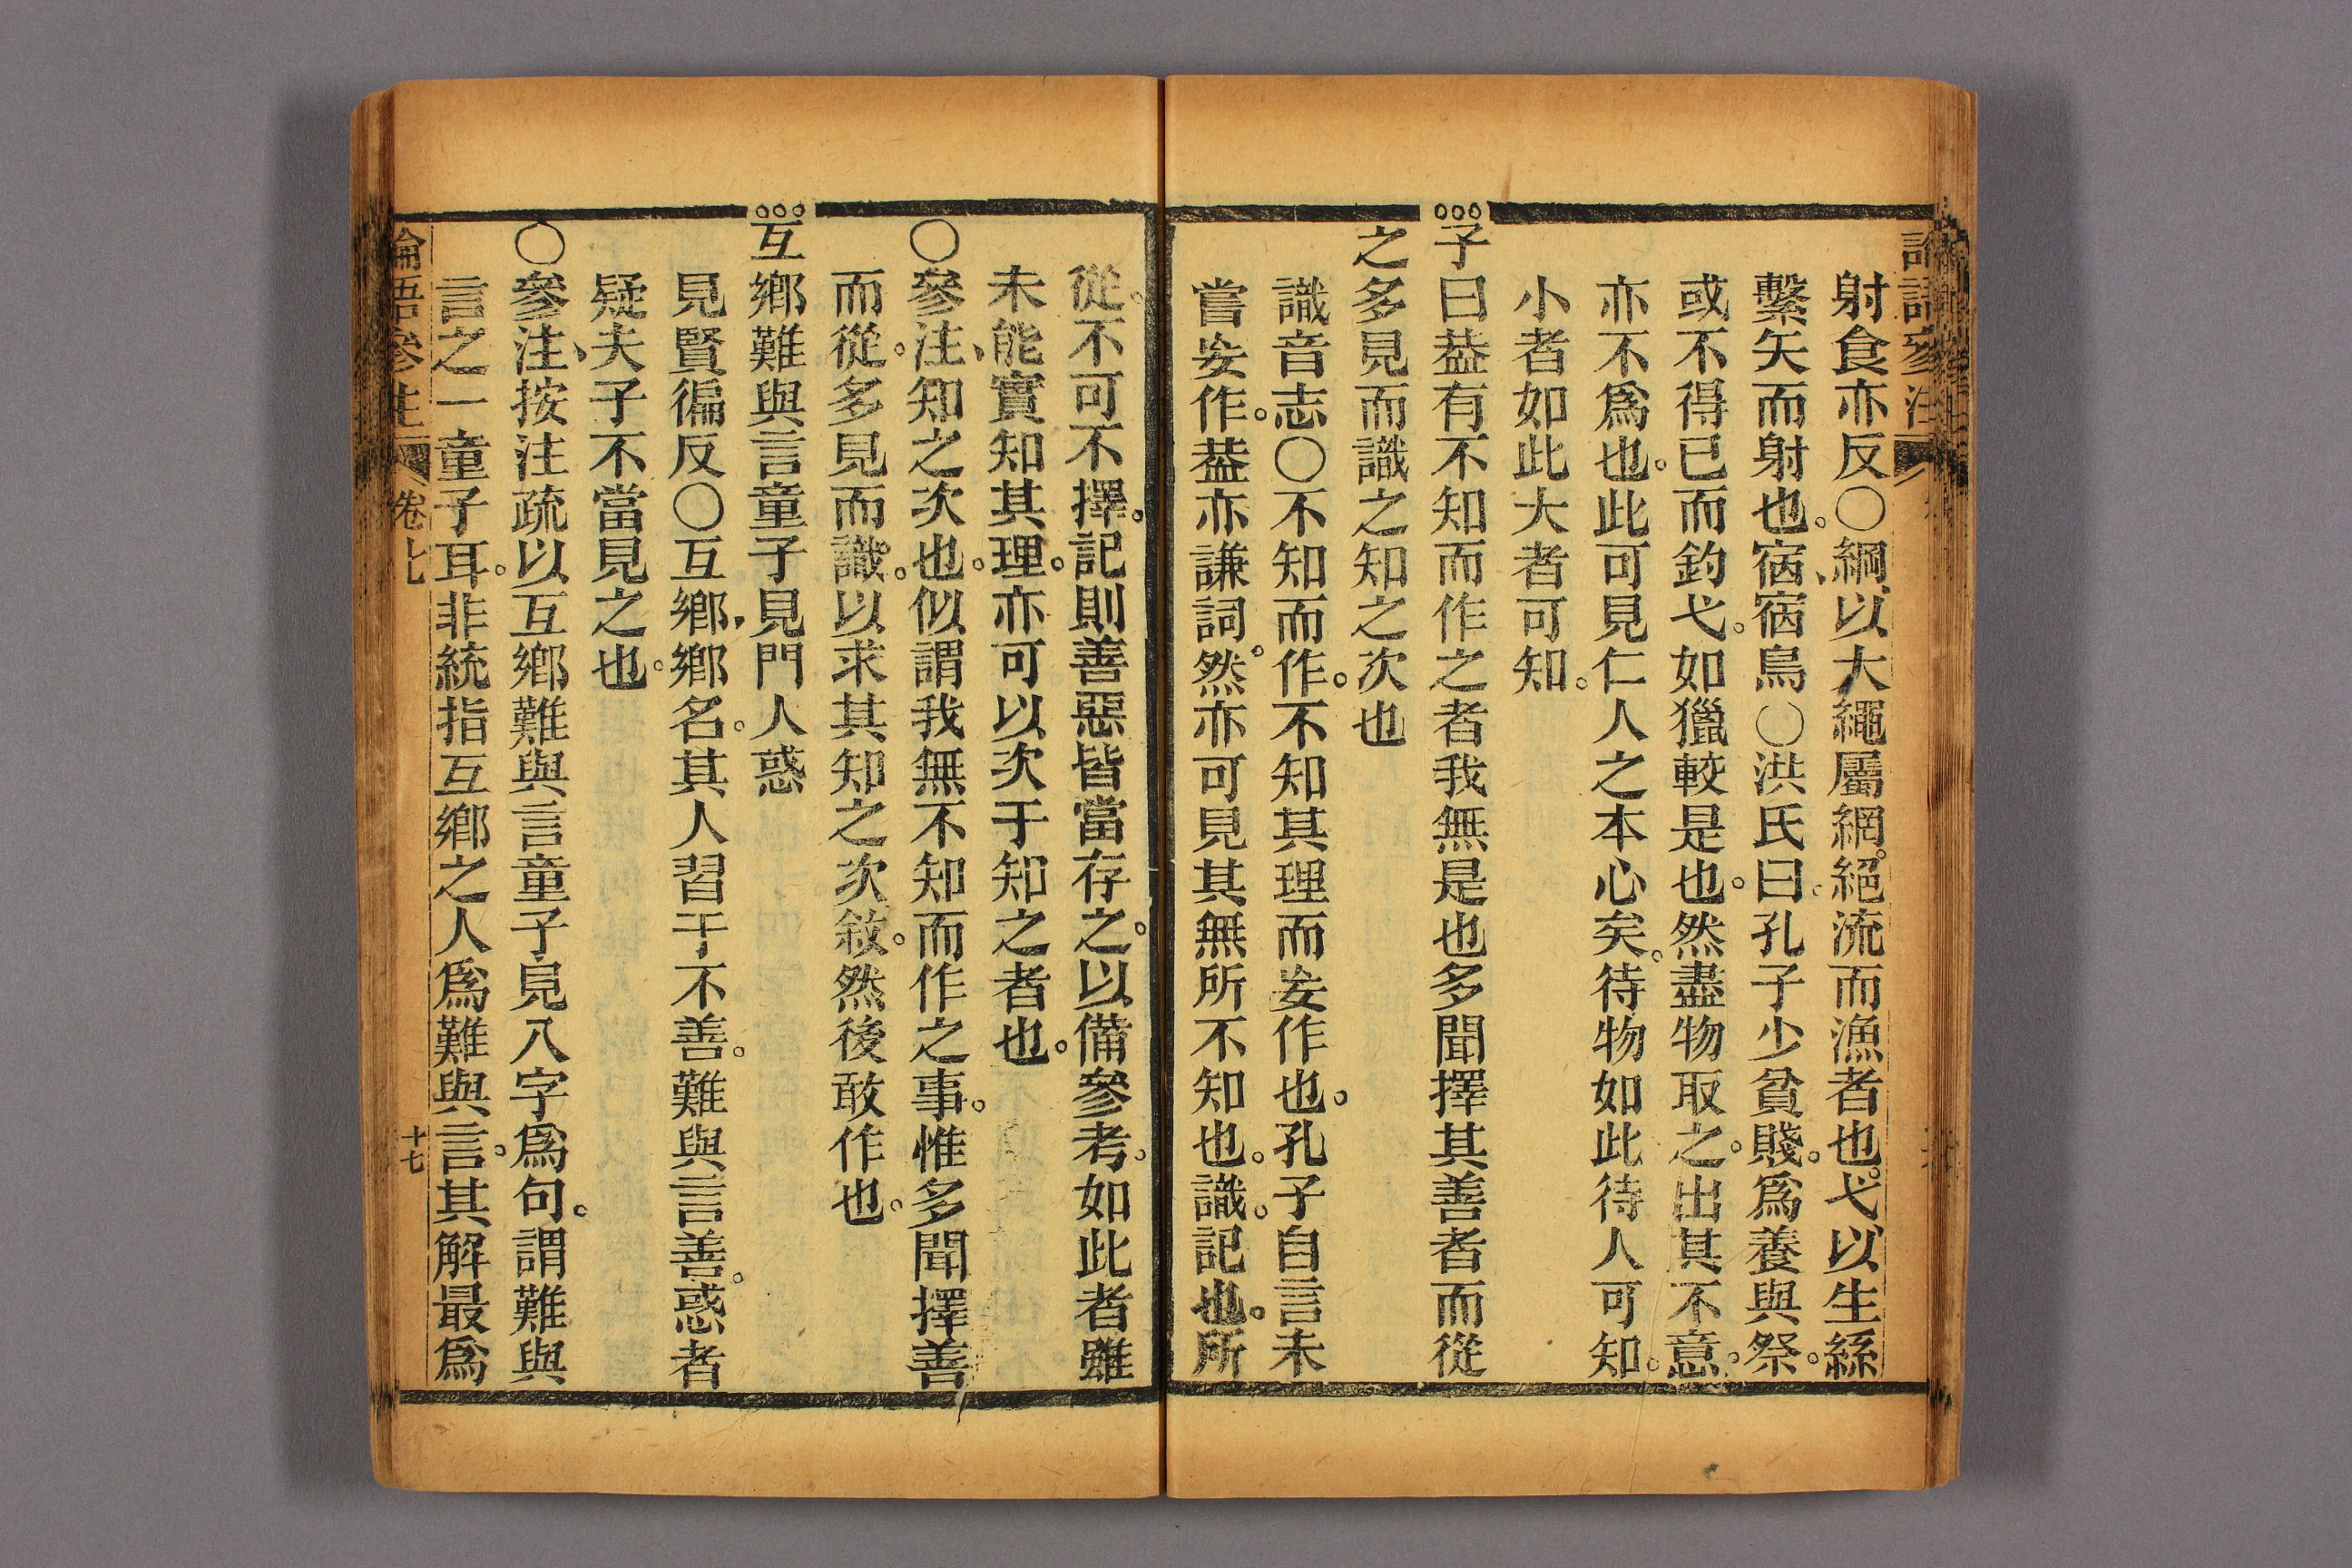 論語參注
射食亦反○綱、以大繩屬網。絕流而漁者也。弋、以生絲
繫矢而射也。宿、宿鳥○洪氏曰。孔子少貧賤。爲養與祭。
或不得已而釣弋。如獵較是也。然盡物取之。出其不意。
亦不爲也。此可見仁人之本心矣。待物如此待人可知。
小者如此大者可知。
子曰葢有不知而作之者我無是也多聞擇其善者而從
之多見而識之知之次也
識音志○不知而作。不知其理而妄作也。孔子自言未
嘗妄作。葢亦謙詞。然亦可見其無所不知也。識。記也。所
從。不可不擇。記則善惡皆當存之。以備參考。如此者雖
未能實知其理。亦可以次于知之者也。
○參注、知之次也。似謂我無不知而作之事。惟多聞擇善
而從。多見而識。以求其知之次敘。然後敢作也。
互鄉難與言童子見門人惑
見賢徧反○互鄉、鄉名。其人習于不善。難與言善。惑者
疑夫子不當見之也。
○參注、按注疏以互鄉難與言童子見八字爲句。謂難與
言之一童子耳。非統指互鄉之人爲難與言。其解最爲
論語參注 卷七 十七